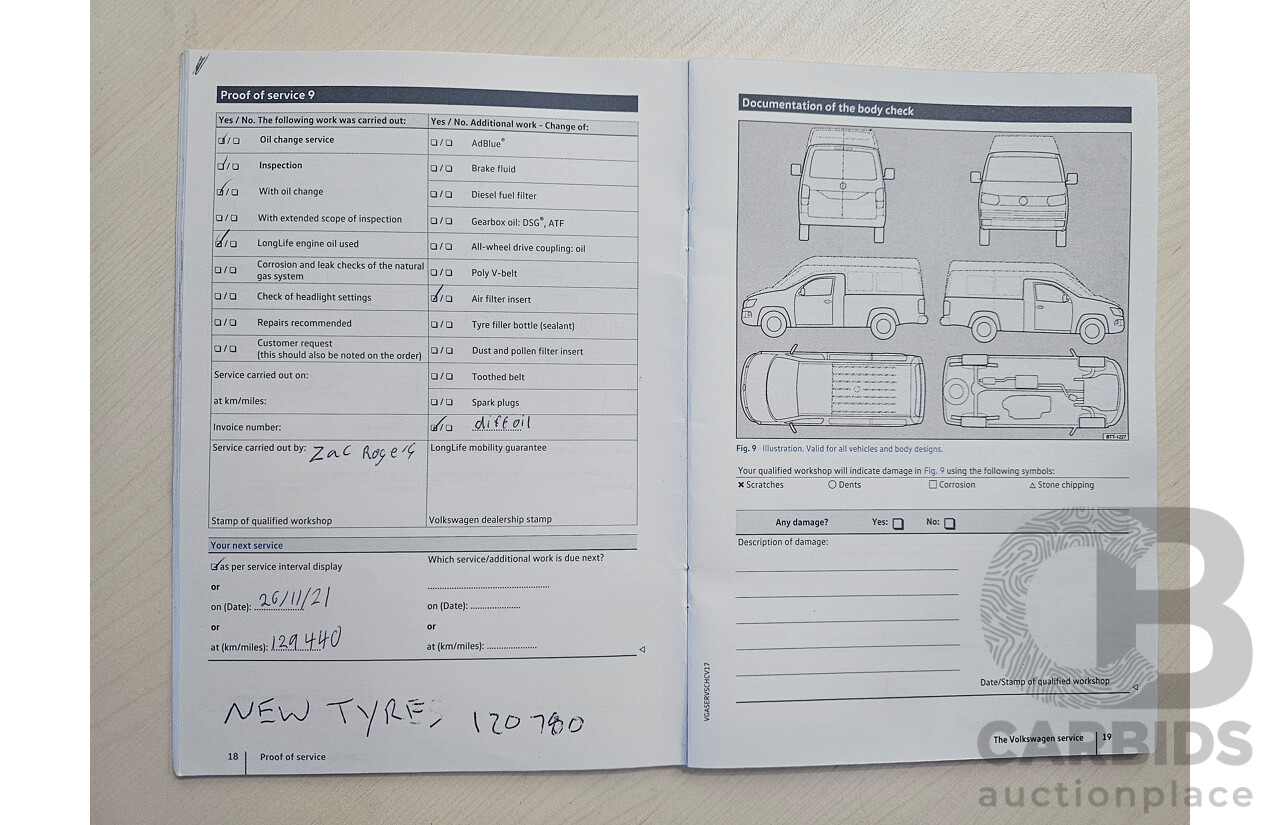 Proof of service 9
Yes / No. The following work was carried out:
Oil change service
Inspection
With oil change
With extended scope of inspection
LongLife engine oil used
Corrosion and leak checks of the natural
gas system
Check of headlight settings
Repairs recommended
Customer request
(this should also be noted on the order)
Service carried out on:
at km/miles:
Invoice number:
Service carried out by: Zac Rogers
Stamp of qualified workshop
Yes / No. Additional work - Change of:
AdBlue®
Brake fluid
Diesel fuel filter
Gearbox oil: DSG®, ATF
All-wheel drive coupling: oil
Poly V-belt
Air filter insert
Tyre filler bottle (sealant)
Dust and pollen filter insert
Toothed belt
Spark plugs
diff oil
LongLife mobility guarantee
Volkswagen dealership stamp
Your next service
as per service interval display
or
on (Date): 26/11/21
or
at (km/miles): 129440
Which service/additional work is due next?
on (Date):
or
at (km/miles):
NEW TYRES 120780
18 Proof of service
Documentation of the body check
BTT-1227
Fig. 9 Illustration. Valid for all vehicles and body designs.
Your qualified workshop will indicate damage in Fig. 9 using the following symbols:
× Scratches ○ Dents □ Corrosion △ Stone chipping
Any damage? Yes: No:
Description of damage:
Date/Stamp of qualified workshop
VGASERVSCHCV17
The Volkswagen service 19
CARBIDS
auctionplace